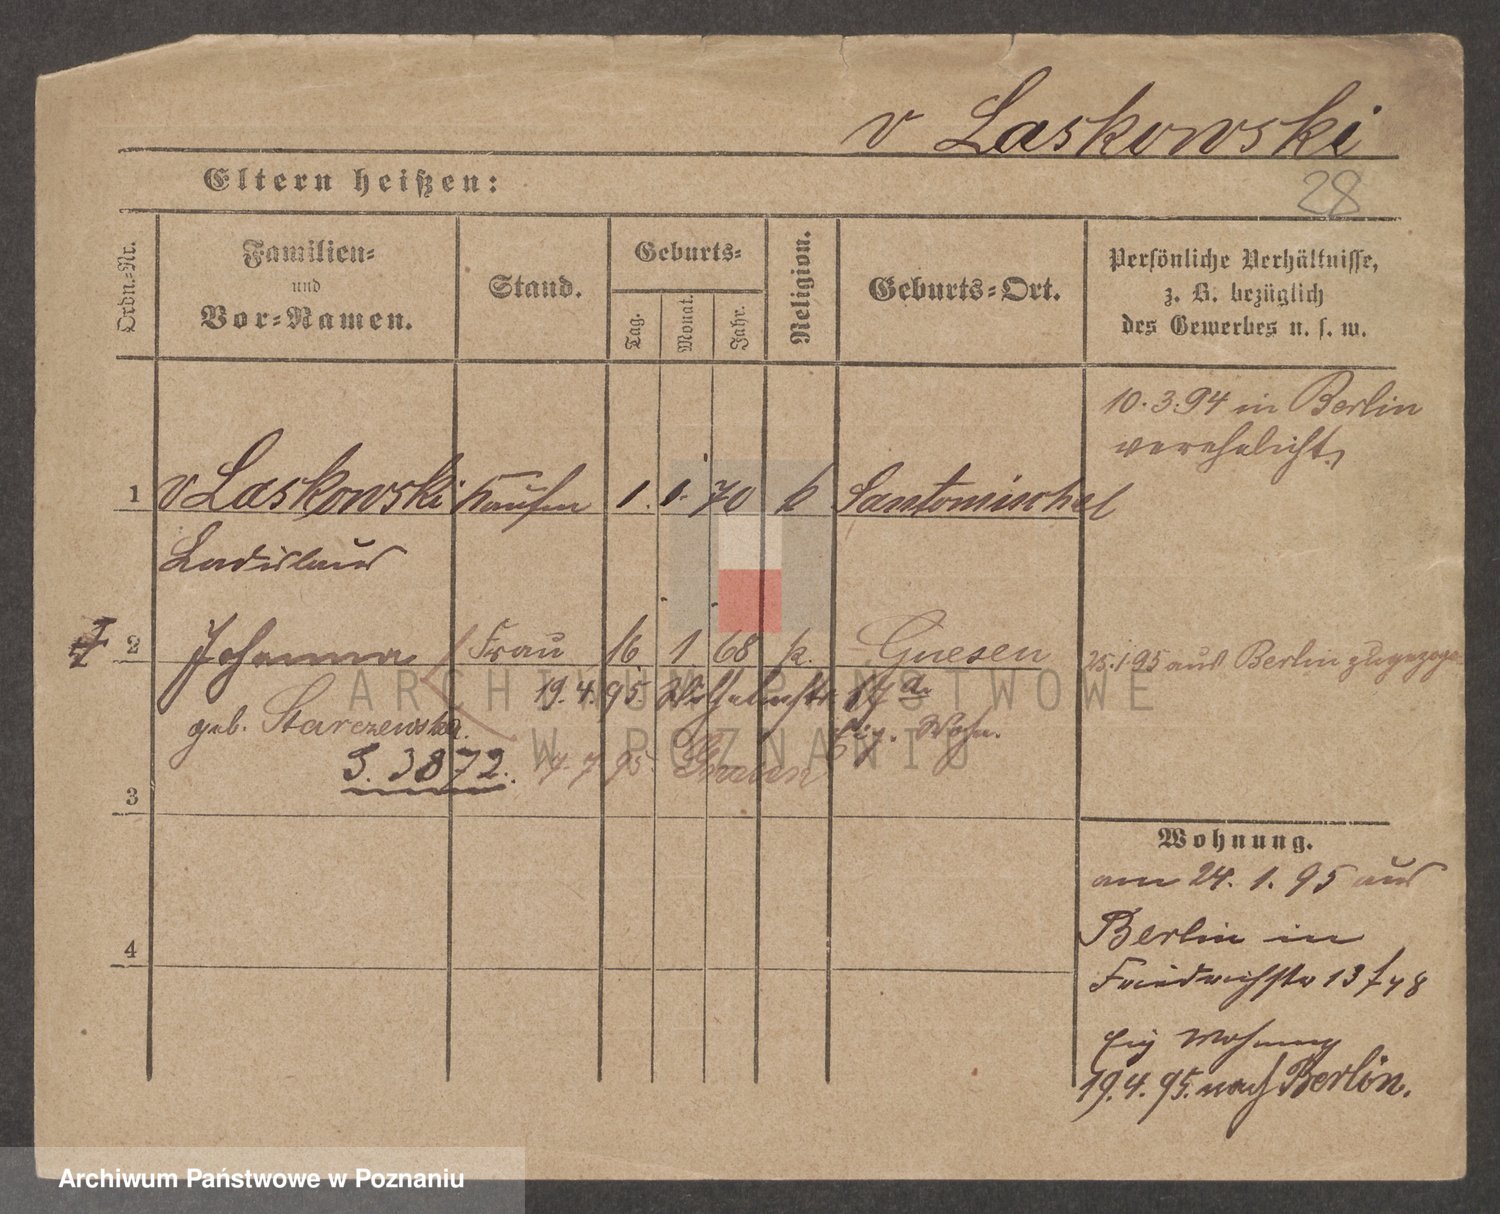 v Laskowski
28
Eltern heißen:
Ordn.-Nr.
Familien-
und
Vor-Namen.
Stand.
Geburts-
Tag.
Monat.
Jahr.
Religion.
Geburts-Ort.
Persönliche Verhältnisse,
z. B. bezüglich
des Gewerbes u. s. w.
10.3.94 in Berlin
verehelicht.
1 v Laskowski Kaufm 1. 1. 70 k Santomischel
Ladislaus
2 Johanna Frau 16 1 68 k. Gnesen 25.1.95 aus Berlin zugezogen
geb. Starczewska. 19.4.95 Wilhelmstr. 17a.
Eig. Wohn.
S. 3872. 17.7.95
3
Wohnung.
am 24.1.95 aus
Berlin in
Friedrichstr 13
4
Eig Wohnung
19.4.95. nach Berlin.
ARCHIWUM PAŃSTWOWE
W POZNANIU
Archiwum Państwowe w Poznaniu